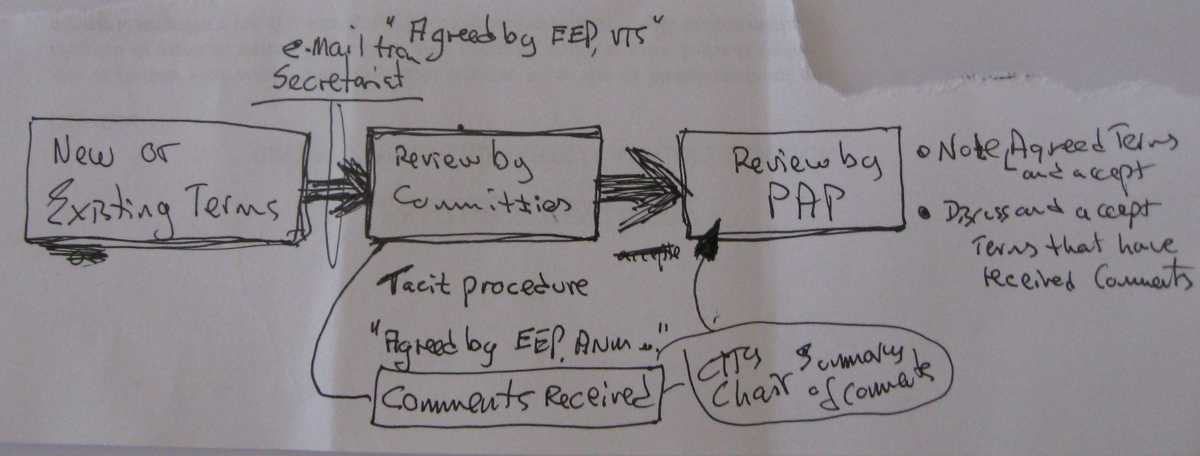 "Agreed by EEP, VTS"
e-mail from
Secretariat
New or
Existing Terms
Review by
Committies
Review by
PAP
• Note Agreed Terms
and accept
• Discuss and accept
Terms that have
received Comments
accepte
Tacit procedure
"Agreed by EEP, ANM ..."
Comments Received
Chair Summary
of Comments